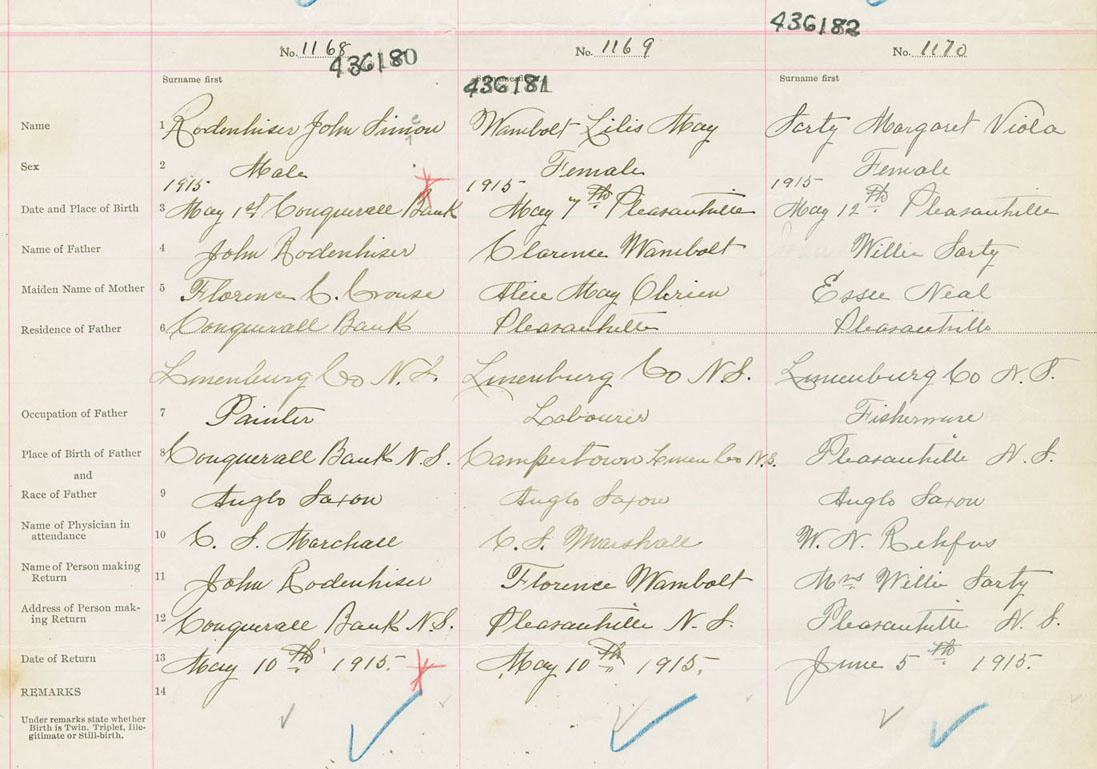 436182
No. 1168 No. 1169 No. 1170
436180
Surname first Surname first Surname first
436181
Name 1 Rodenhiser John Simeon Wambolt Lilis May Sarty Margaret Viola
Sex 2 Male Female Female
1915 1915 1915
Date and Place of Birth 3 May 1st Conquerall Bank May 7th Pleasantville May 12th Pleasantville
Name of Father 4 John Rodenhiser Clarence Wambolt Willie Sarty
Maiden Name of Mother 5 Florence C. Crouse Alice May Obrien Essee Neal
Residence of Father 6 Conquerall Bank Pleasantville Pleasantville
Lunenburg Co N.S. Lunenburg Co N.S. Lunenburg Co N.S.
Occupation of Father 7 Painter Labourer Fisherman
Place of Birth of Father 8 Conquerall Bank N.S. Campertown Lunen Co N.S. Pleasantville N.S.
and
Race of Father 9 Anglo Saxon Anglo Saxon Anglo Saxon
Name of Physician in
attendance 10 C. S. Marchall C. S. Marshall W. N. Rehfus
Name of Person making
Return 11 John Rodenhiser Florence Wambolt Mrs Willie Sarty
Address of Person mak-
ing Return 12 Conquerall Bank N.S. Pleasantville N.S. Pleasantville N.S.
Date of Return 13 May 10th 1915. May 10th 1915. June 5th 1915.
REMARKS 14
Under remarks state whether
Birth is Twin, Triplet, Ille-
gitimate or Still-birth.